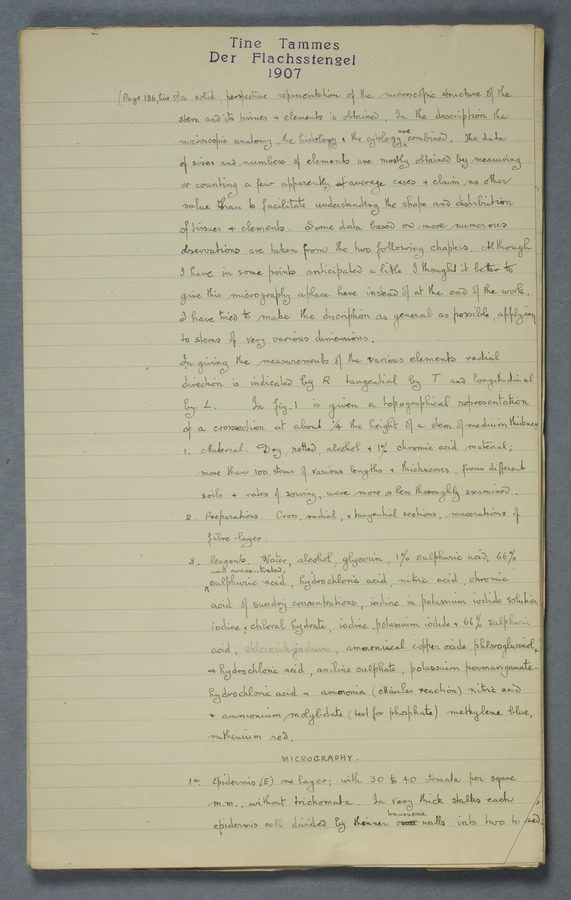 Tine Tammes
Der Flachsstengel
1907
(Page 136, line 5) a solid perspective representation of the microscopic structure of the
stem and its tissues + elements is obtained. In the description the
microscopic anatomy, the histology + the cytology are combined. The data
of sizes and numbers of elements are mostly obtained by measuring
or counting a few apparently average cases + claim no other
value than to facilitate understanding the shape and distribution
of tissues + elements. Some data based on more numerous
observations are taken from the two following chapters. Although
I have in some points anticipated a little I thought it better to
give this micrography a place here instead of at the end of the work.
I have tried to make the discription as general as possible, applying
to stems of very various dimensions.
In giving the measurements of the various elements radial
direction is indicated by R tangential by T and longitudinal
by L. In fig. 1 is given a topographical representation
of a crossection at about ¼ the height of a stem of medium thickness
1. Material. Dry, retted, alcohol + 1% chromic acid material;
more than 100 stems of various lengths + thicknesses, from different
soils + rates of sowing, were more or less thoroughly examined.
2. Preparations. Cross, radial, + tangential sections, macerations of
fibre-layer.
3. Reagents. Water, alcohol, glycerin, 1% sulphuric acid, 66%
and concentrated
sulphuric acid, hydrochloric acid, nitric acid, chromic
acid of sundry concentrations, iodine in potassium iodide solution
iodine + chloral hydrate, iodine potassium iodide + 66% sulphuric
acid, ammoniacal copper oxide phloroglucinol,
+ hydrochloric acid, aniline sulphate, potassium permanganate-
hydrochloric acid + ammonia (Mäules reaction) nitric acid
+ ammonium molybdate (test for phosphate) methylene blue,
ruthenium red.
MICROGRAPHY.
1a. Epidermis (E) one layer; with 30 to 40 stomata per sqare
m.m., without trichomata. In very thick stalks each
epidermis cell divided by thinner transverse walls into two to